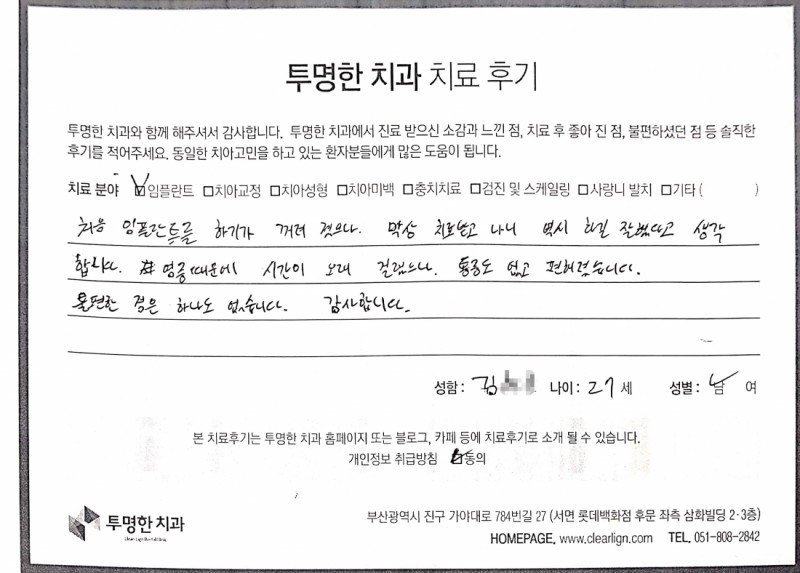 투명한 치과 치료 후기
투명한 치과와 함께 해주셔서 감사합니다. 투명한 치과에서 진료 받으신 소감과 느낀 점, 치료 후 좋아 진 점, 불편하셨던 점 등 솔직한
후기를 적어주세요. 동일한 치아고민을 하고 있는 환자분들에게 많은 도움이 됩니다.
치료 분야 ☑임플란트 □치아교정 □치아성형 □치아미백 □충치치료 □검진 및 스케일링 □사랑니 발치 □기타 ( )
처음 임플란트를 하기가 꺼려 졌으나. 막상 치료받고 나니 역시 하길 잘했다고 생각
합니다. 염증때문에 시간이 오래 걸렸으나. 통증도 없고 편해졌습니다.
불편한 점은 하나도 없습니다. 감사합니다.
성함 : 김 나이 : 27 세 성별 : 남 여
본 치료후기는 투명한 치과 홈페이지 또는 블로그, 카페 등에 치료후기로 소개 될 수 있습니다.
개인정보 취급방침 ☑동의
투명한 치과
부산광역시 진구 가야대로 784번길 27 (서면 롯데백화점 후문 좌측 삼화빌딩 2·3층)
HOMEPAGE. www.clearlign.com TEL. 051-808-2842